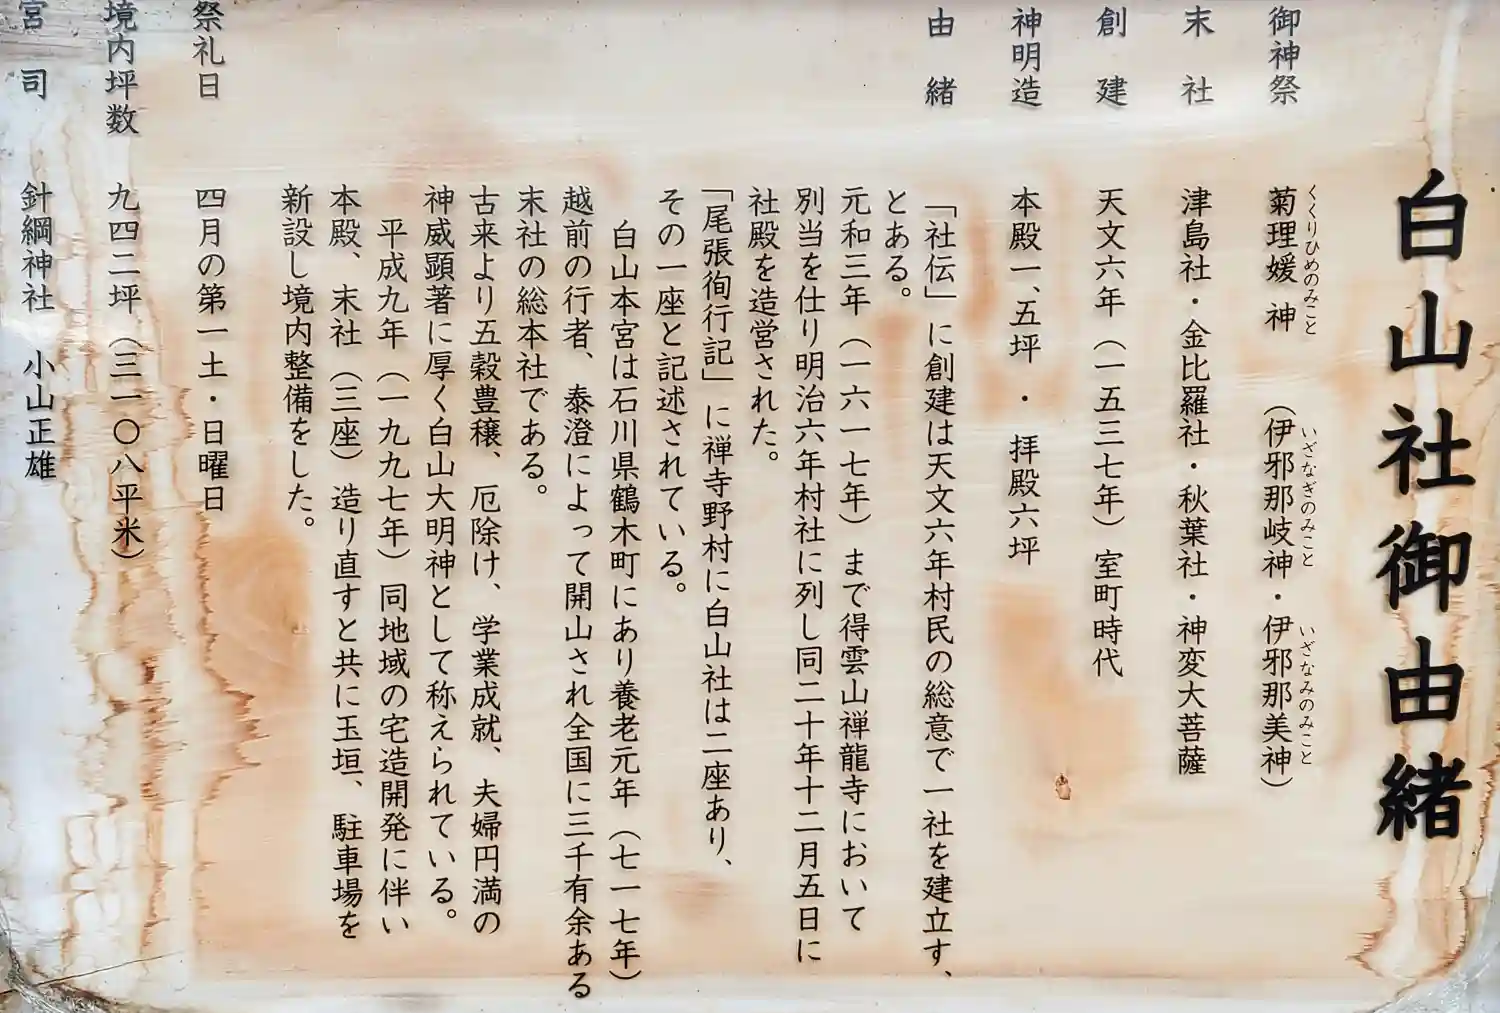 白山社御由緒
御神祭 菊理媛 神 （伊邪那岐神・伊邪那美神）
くくりひめのみこと いざなぎのみこと いざなみのみこと
末社 津島社・金比羅社・秋葉社・神変大菩薩
創建 天文六年（一五三七年）室町時代
神明造 本殿一、五坪 ・ 拝殿六坪
由緒 「社伝」に創建は天文六年村民の総意で一社を建立す、
とある。
元和三年（一六一七年）まで得雲山禅龍寺において
別当を仕り明治六年村社に列し同二十年十二月五日に
社殿を造営された。
「尾張徇行記」に禅寺野村に白山社は二座あり、
その一座と記述されている。
白山本宮は石川県鶴木町にあり養老元年（七一七年）
越前の行者、泰澄によって開山され全国に三千有余ある
末社の総本社である。
古来より五穀豊穣、厄除け、学業成就、夫婦円満の
神威顕著に厚く白山大明神として称えられている。
平成九年（一九九七年）同地域の宅造開発に伴い
本殿、末社（三座）造り直すと共に玉垣、駐車場を
新設し境内整備をした。
祭礼日 四月の第一土・日曜日
境内坪数 九四二坪（三一〇八平米）
宮司 針綱神社 小山正雄